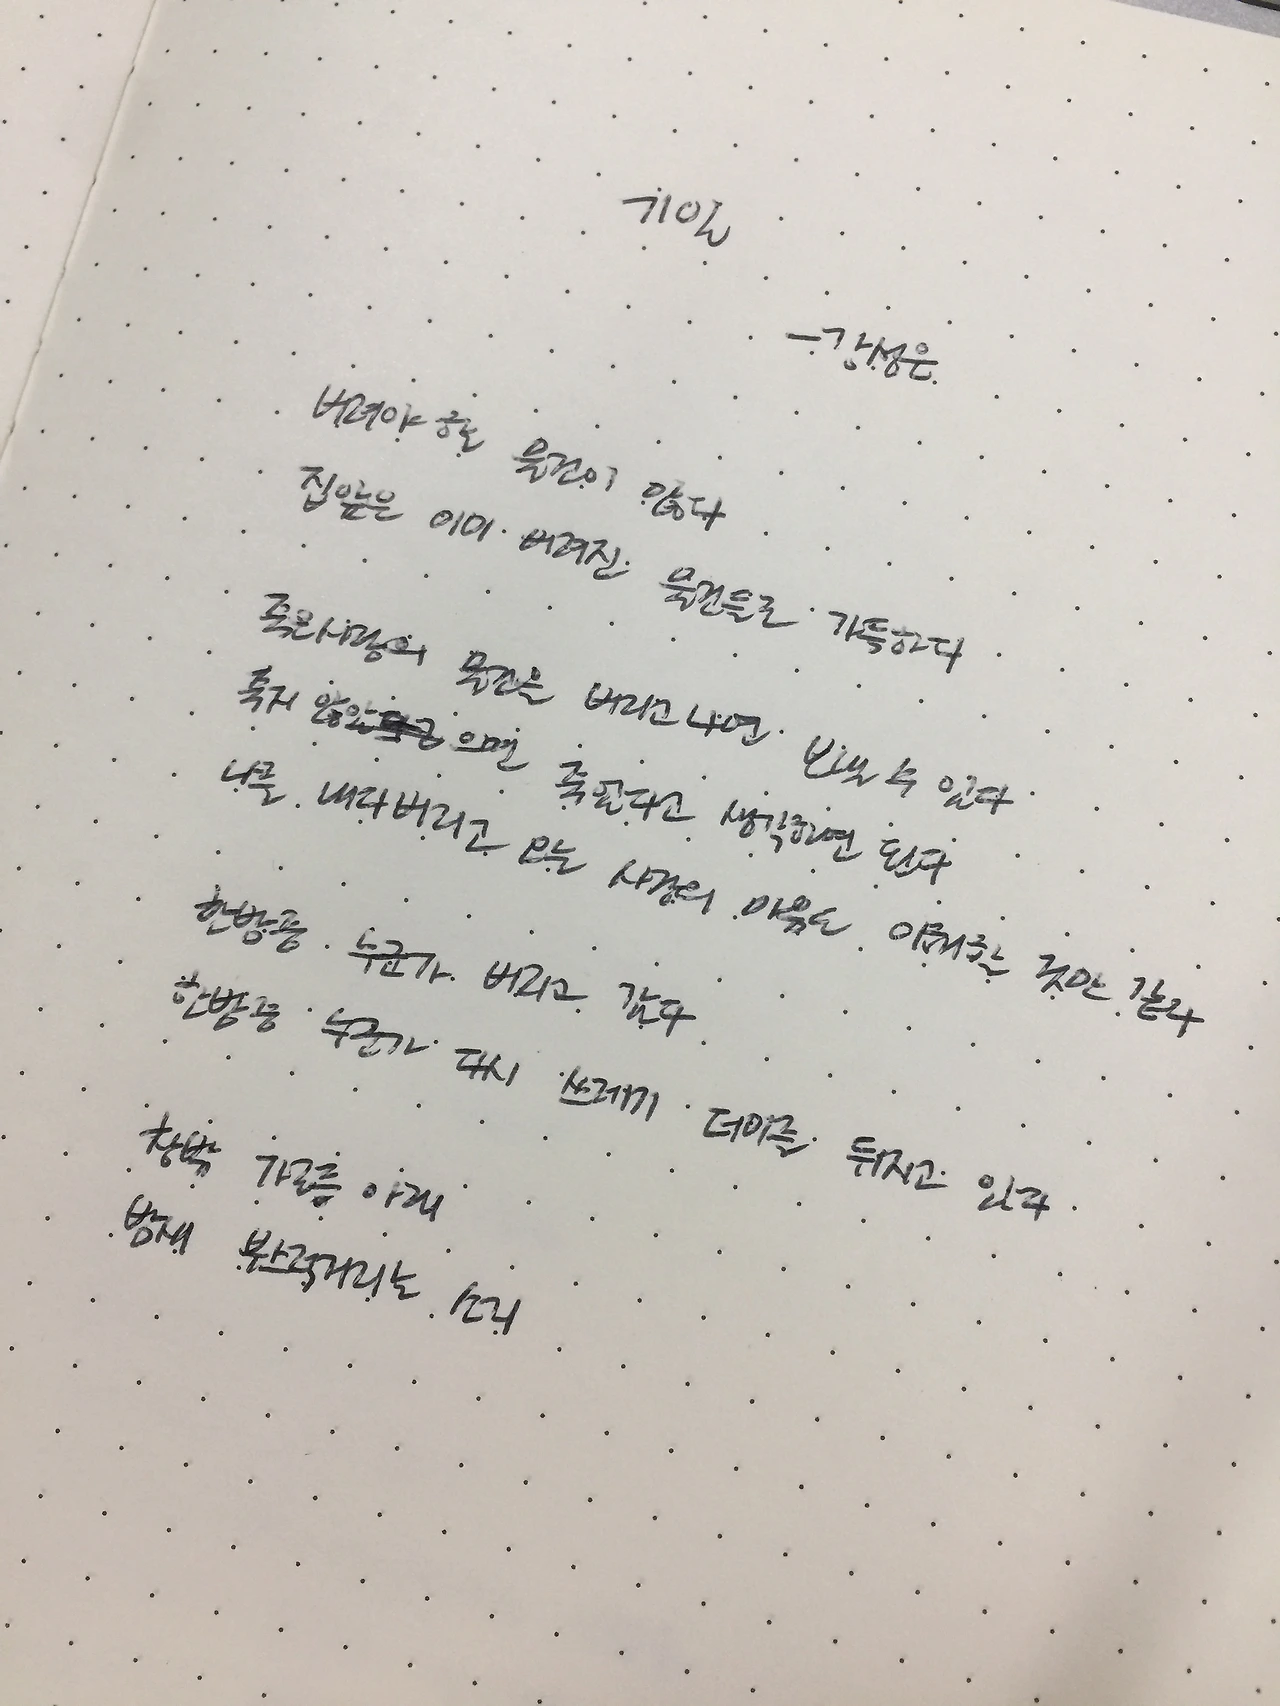 기일
- 강성은
버려야 할 물건이 많다
집앞은 이미 버려진 물건들로 가득하다
죽은사람의 물건을 버리고 나면 보낼 수 있다
죽지 않았으면 죽었다고 생각하면 된다
나를 내다버리고 오는 사람의 마음도 이해할 것만 같다
한밤중 누군가 버리고 갔다
한밤중 누군가 다시 쓰레기 더미를 뒤지고 있다
창밖 가로등 아래
밤새 부스럭거리는 소리